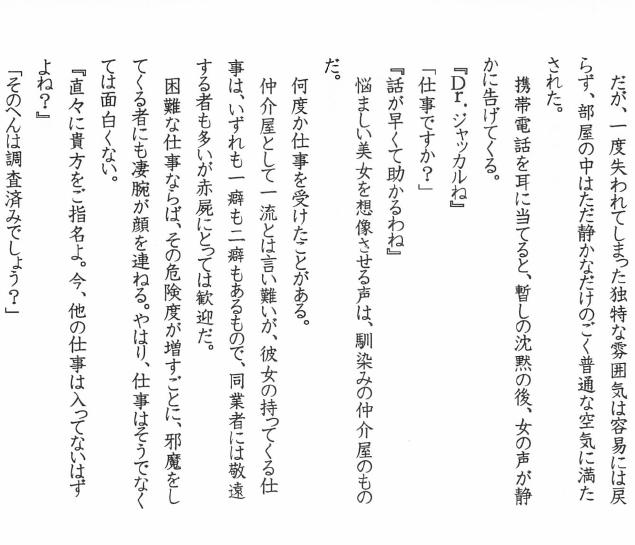 だが、一度失われてしまった独特な雰囲気は容易には戻
らず、部屋の中はただ静かなだけのごく普通な空気に満た
された。
携帯電話を耳に当てると、暫しの沈黙の後、女の声が静
かに告げてくる。
『Dr.ジャッカルね』
「仕事ですか？」
『話が早くて助かるわね』
悩ましい美女を想像させる声は、馴染みの仲介屋のもの
だ。
何度か仕事を受けたことがある。
仲介屋として一流とは言い難いが、彼女の持ってくる仕
事は、いずれも一癖も二癖もあるもので、同業者には敬遠
する者も多いが赤屍にとっては歓迎だ。
困難な仕事ならば、その危険度が増すごとに、邪魔をし
てくる者にも凄腕が顔を連ねる。やはり、仕事はそうでなく
ては面白くない。
『直々に貴方をご指名よ。今、他の仕事は入ってないはず
よね？』
「そのへんは調査済みでしょう？」